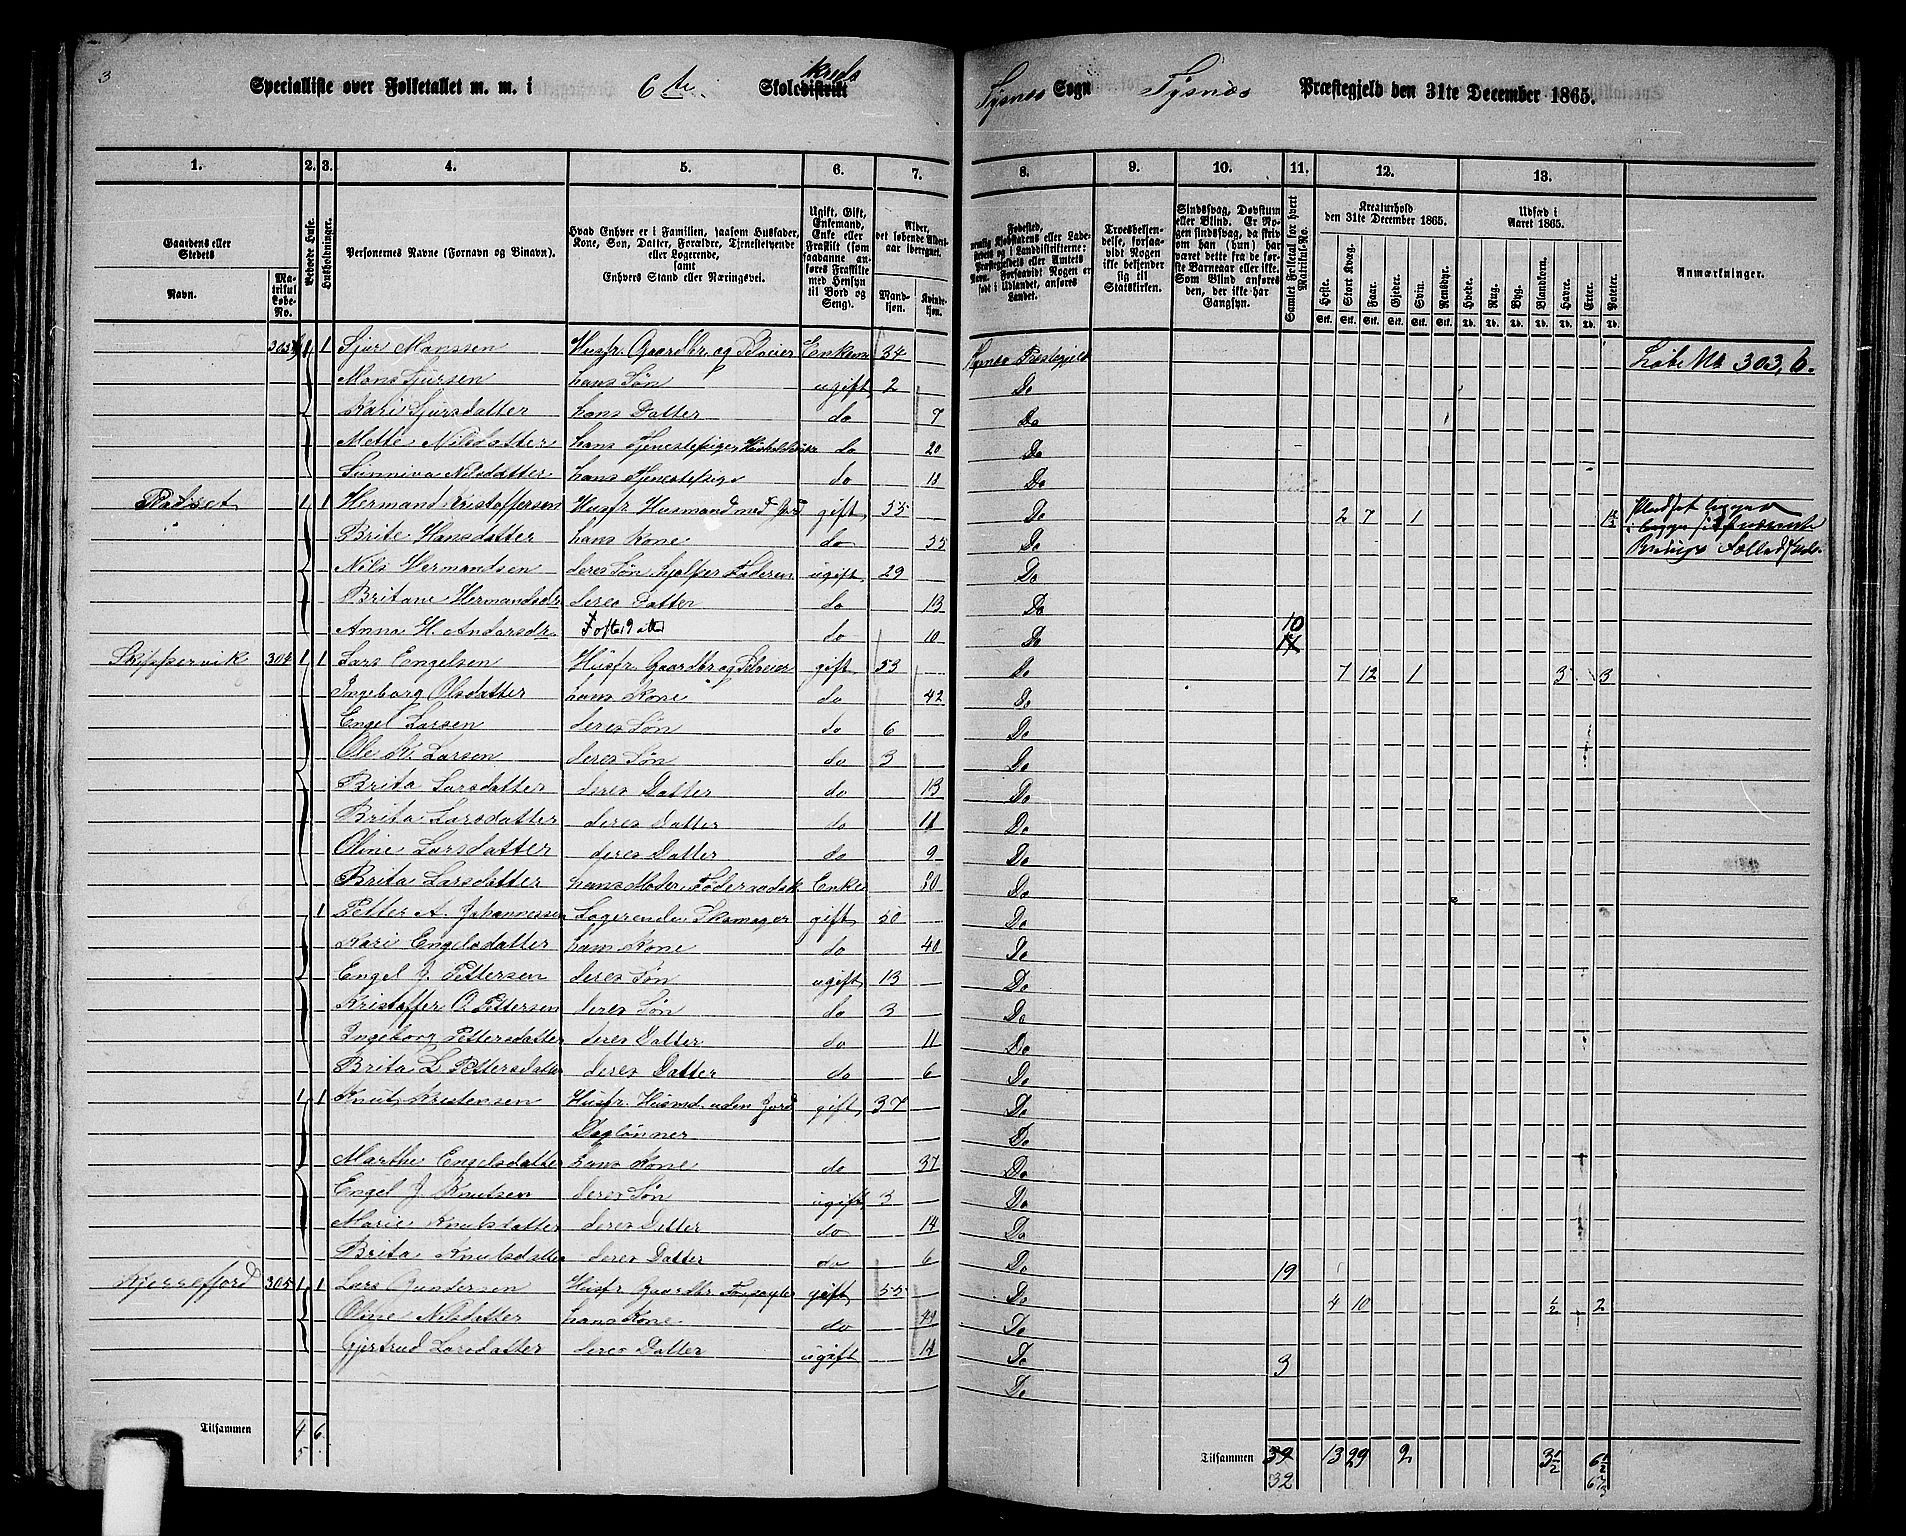 3
Specialliste over Folketallet m. m. i 6te Skoledistrikt kreds Tysnes Sogn Tysnes Præstegjeld den 31te December 1865.
1. 2. 3. 4. 5. 6. 7. 8. 9. 10. 11. 12. 13.
Gaardens eller Stedets Navn.
Matrikul Løbe-No.
Beboede Huse.
Husholdninger.
Personernes Navne (Fornavn og Binavn).
Hvad Enhver er i Familien, saasom Husfader, Kone, Søn, Datter, Forældre, Tjenestetyende eller Logerende, samt Enhvers Stand eller Næringsvei.
Ugift, Gift, Enkemand, Enke eller Fraskilt (som saadanne anføres Fraskilte med Hensyn til Bord og Seng).
Alder, det løbende Aldersaar iberegnet.
Mandkjøn. Kvindekjøn.
Troesbekjendelse, forsaavidt Nogen ikke bekjender sig til Statskirken.
Samlet Folketal for hvert Matrikul-No.
Kreaturhold den 31te December 1865.
Heste. Stort Kvæg. Faar. Gjeder. Svin. Rensdyr.
Udsæd i Aaret 1865.
Hvede. Rug. Byg. Blandkorn. Havre. Erter. Poteter.
Anmærkninger.
1 1 Sjur Monssen Husfr. Gaardbr. og Enkem 34 Tysnes Præstegjeld Løbe No 303, b.
Mons Sjursen hans Søn ugift 2 Do
Kari Sjursdatter hans Datter do 7 Do
Mette Nilsdatter hans Tjenestepige do 20 Do
Sunniva Nilsdatter hans Tjenestepige do 18 Do
1 1 Hermand Kristoffersen Husfr. Husmand med Jord gift 55 Do 2 7 1
Brite Hansdatter hans Kone do 55 Do
Nils Hermandsen deres Søn hjelper Faderen ugift 29 Do
Britane Hermandsdr deres Datter do 13 Do
Anna H. Andersdr do 10 Do 10
Skippervik 304 1 1 Lars Engelsen Husfr. Gaardbr og Selveier gift 53 Do 7 12 1 3 3
Ingeborg Olsdatter hans Kone do 42 Do
Engel Larsen deres Søn do 6 Do
Ole K. Larsen deres Søn do 3 Do
Brita Larsdatter deres Datter do 13 Do
Brita Larsdatter deres Datter do 11 Do
Oline Larsdatter deres Datter do 9 Do
Brita Larsdatter hans Moder Enke 80 Do
1 Petter A. Johannessen Logerende Skomager gift 50 Do
Kari Engelsdatter hans Kone do 40 Do
Engel J. Pettersen deres Søn ugift 13 Do
Kristoffer O. Pettersen deres Søn do 3 Do
Ingeborg Pettersdatter deres Datter do 11 Do
Brita L Pettersdatter deres Datter do 6 Do
1 1 Knut Kristensen Husfr. Husmd. uden Jord gift 37 Do
Daglønner Do
Marthe Engelsdatter hans Kone do 37 Do
Engel J. Knutsen deres Søn ugift 3 Do
Marie Knutsdatter deres Datter do 14 Do
Brita Knutsdatter deres Datter do 6 Do 19
305 1 1 Lars Gundersen Husfr. Gaardbr gift 55 Do 4 10 1/2 2
Oline Nilsdatter hans Kone do 49 Do
Gjertrud Larsdatter deres Datter ugift 11 Do 3
Do
Tilsammen 4 6 Tilsammen 39 13 29 2 3 1/2
5 32